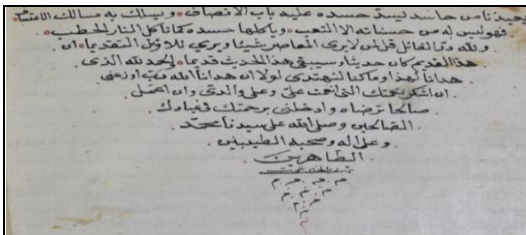 يعيذنا من حاسد يسدّ حسده عليه باب الانصاف ويسلك به مسالك الاعتساف
فهو ليس له من حسناته الا التعب ويأكلها حسده كما تأكل النار الحطب
ولله درّ القائل قل لمن لا يرى المعاصر شيئا ويرى للاوائل التقديما ان
هذا القديم كان حديثا وسيبقى هذا الحديث قديما والحمد لله الذى
هدانا لهذا وما كنا لنهتدى لولا ان هدانا الله رب اوزعنى
ان اشكر نعمتك التى انعمت علىّ وعلى والدىّ وان اعمل
صالحا ترضاه وادخلنى برحمتك فى عبادك
الصالحين وصلى الله على سيدنا محمد
وعلى اله وصحبه الطيبين
الطاهرين